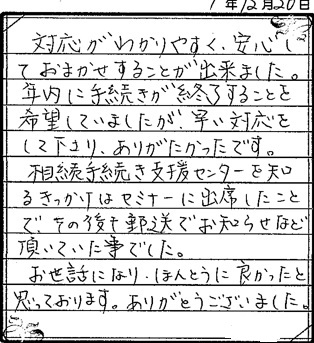 年12月20日
対応がわかりやすく、安心し
ておまかせすることが出来ました。
年内に手続きが終了することを
希望していましたが、早い対応を
して下さり、ありがたかったです。
相続手続き支援センターを知
るきっかけはセミナーに出席したこと
で、その後も郵送でお知らせなど
頂いていた事でした。
お世話になり、ほんとうに良かったと
思っております。ありがとうございました。